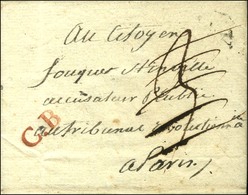 Au Citoyen
fouquet tinville
accusateur Public
C.B
au tribunal revolutionaire
a Paris